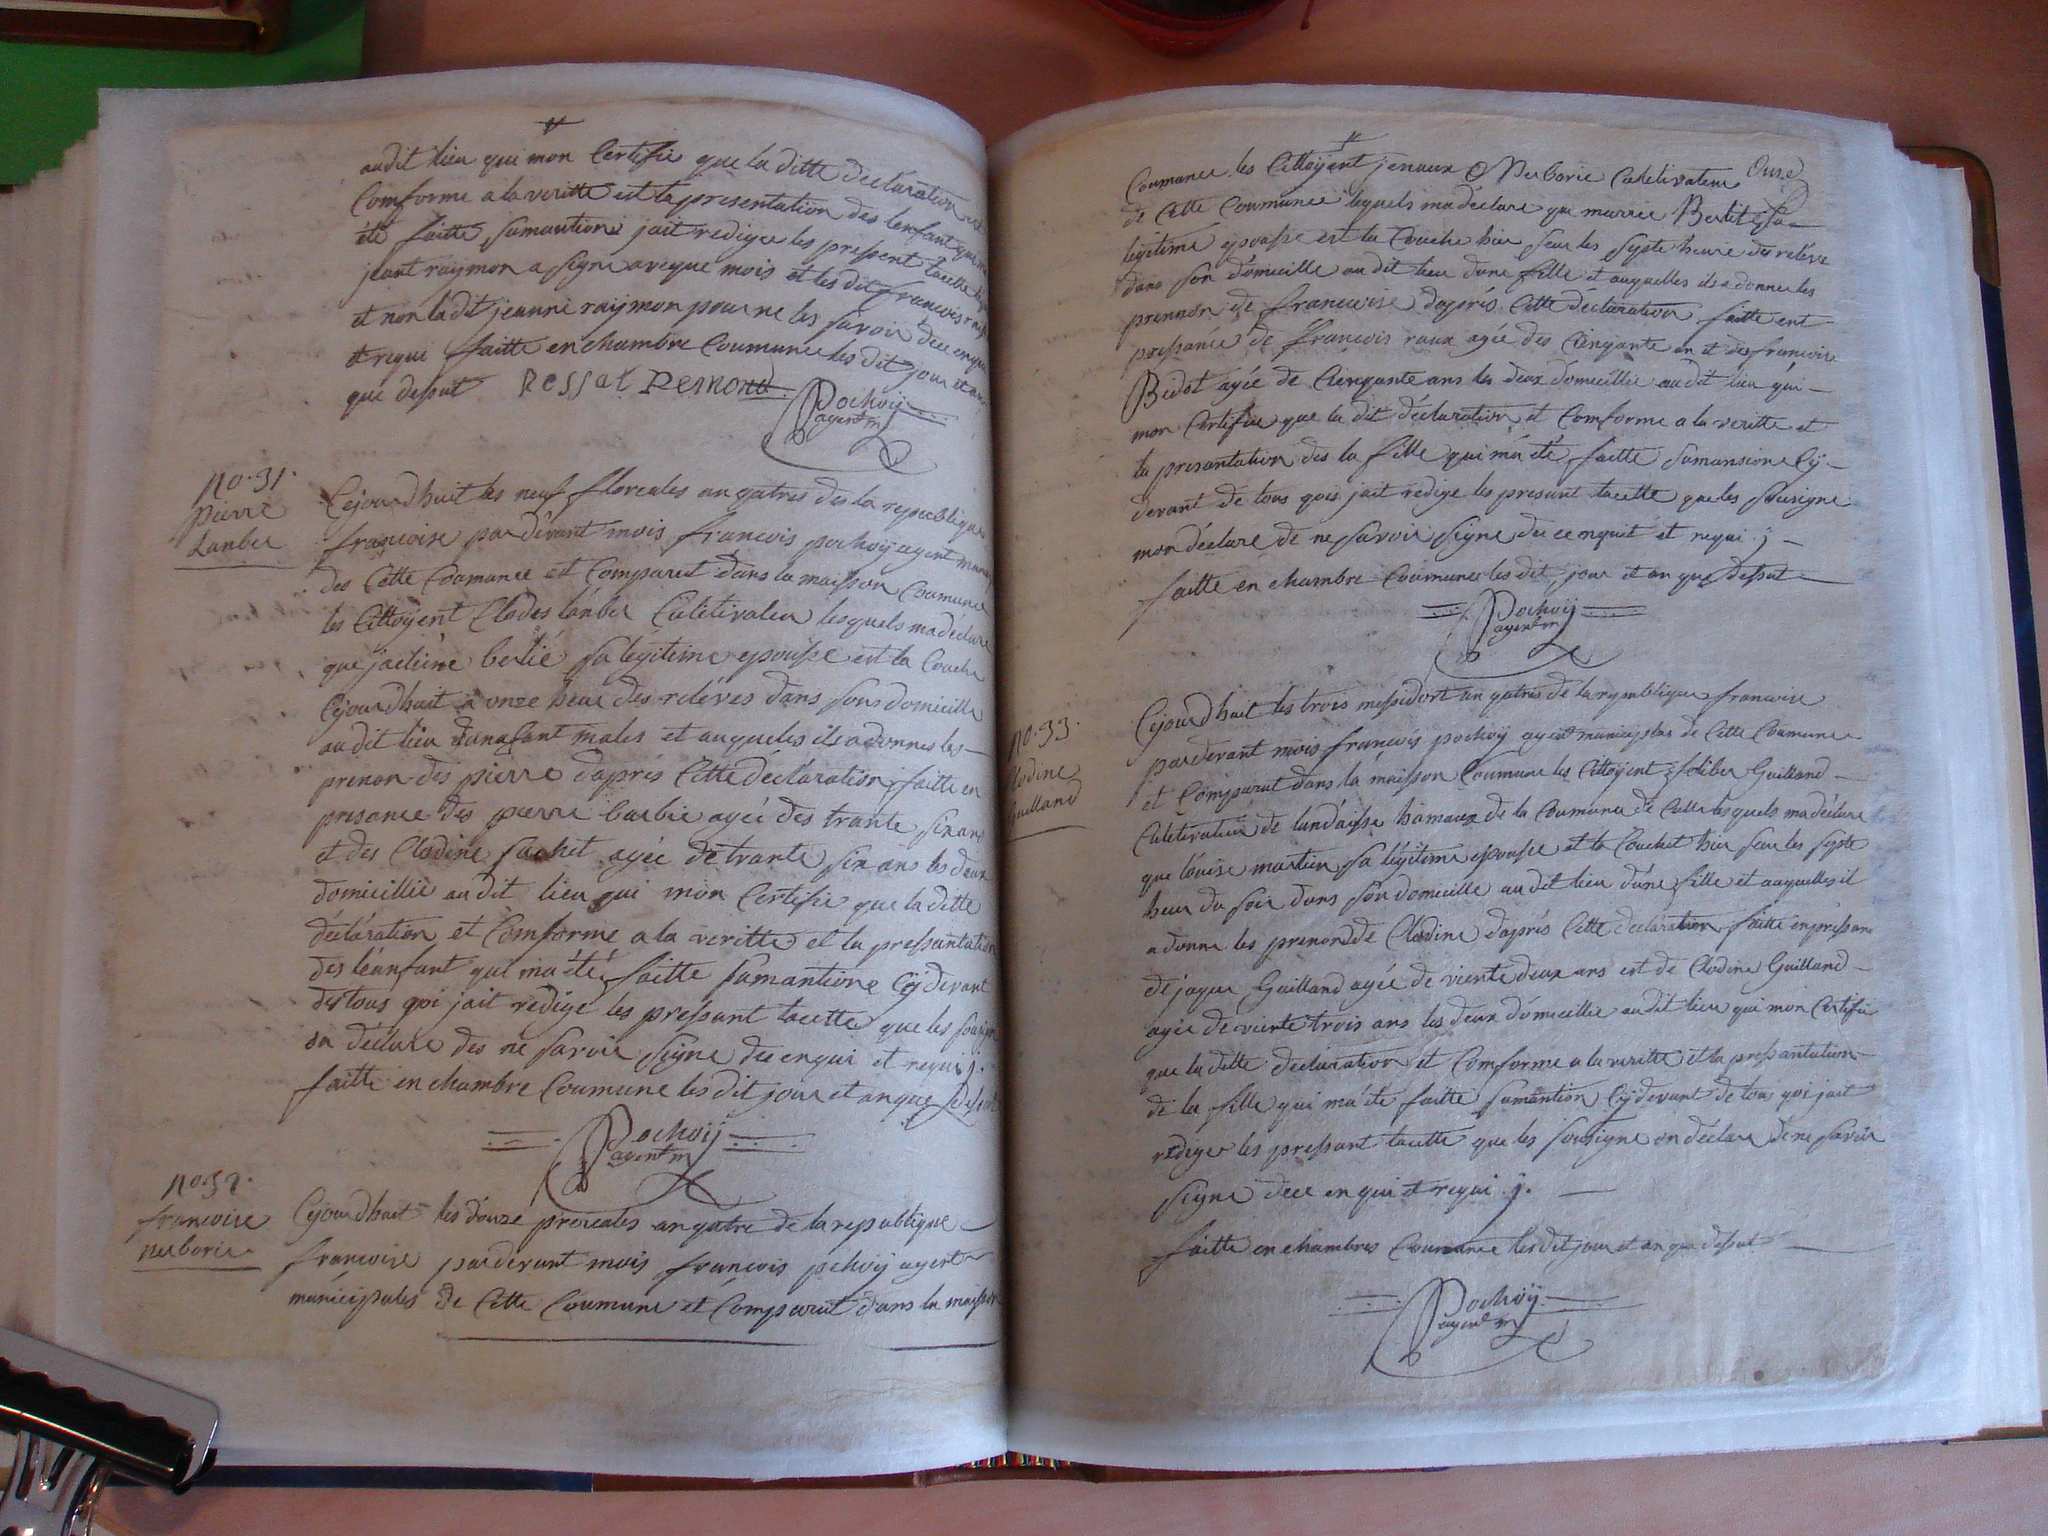 audit lieu qui mon Certifie que la ditte declaration est
Comforme a la veritte est la presentation des lenfant qui ma
été faitte sumantione jait rediger les pressent tacette
jeant raymon a signe aveque mois et les dit francois
et non la dit jeanne raymon pour ne les savoir dece enquit
et requi faitte en chambre Coumune les dit jour et an
que dessut Ressat Remond
Pochoÿ
agent m
no. 31.
pierre
Lanber
Cejourdhuit les neuf floreales an qatres des la republique
francoise par devant mois francois pochoÿ agent
des Cette Coumunee est Comparut dans la maisson Coumune
les Cittoÿent Clodes lanber Culetivateu lesquels madéclare
que jaclline bertié sa légitime epousse est la Couche
Cejourdhuit a onze heur des relèves dans sons domicille
au dit lieu dunafant males et auqueles ils a donnes les
prenon des pierre daprés Cette déclaration faitte en
presance des pierre barbie agée des trante six ans
et des Clodine sachet agée de trante six ans les deux
domicillié au dit lieu qui mon Certifie que la ditte
déclaration et Comforme a la veritte et la pressantation
des léanfant qui ma été faitte sumantione Cÿ devant
des tous qoi jait redige les pressant tacette que les
on déclare des ne savoir signe dece enqui et requi j.
faitte en chambre Coumune les dit jour et an que dessut
Pochoÿ
agent m
no. 32.
francoise
nerborie
Cejourdhuit les douze an qatre de la republique
francoise par devant mois francois pochoÿ agent
municipales de Cette Coumune et Comparut dans la maisson
Coumunee les Cittoÿent jenaux Nerborie Culetivateur Onze
de Cette Coumunee lequels madéclare que marrie Bertet sa
legitime epousse est la Couche hier seur les sypte heure des relève
dans son domicille au dit lieu dune fille et auquelles ils a donner les
prennon de francoise daprés Cette déclaration faitte ent
pressance de francois raux agée des Cinqante an et des francoise
Bidot agée de Cinqante ans les deux domicillie au dit lieu qui
mon Certifie que la dit déclaration et Comforme a la veritte et
la presantation des la fille qui ma été faitte sumansione Cÿ
devant de tous qois jait redige les presant tacette que les sousigne
mon déclare de ne savoir signe dece enquit et requi j
faitte en chambre Coumunee les dit jour et an que dessut
Pochoÿ
agent m
no. 33.
Clodine
Guilland
Cejourdhuit les trois messidort an qatres de la republique francoise
par devant mois francois pochoÿ agent municiplas de Cette Coumune
et Comparut dans la maisson Coumune les Cittoÿent Guilland
Culetivateur de hamaux de la Coumune de Culle lesquels madéclare
que louise martin sa légitime epousse et la Couchet hier seur les sypte
heur du soir dans son domicille au dit lieu dune fille et auquelles il
a donne les prenond de Clodine daprés Cette déclaration faitte en pressans
de jaque Guilland agée de viente deux ans est de Clodine Guilland
agée de viente trois ans les deux domicillie au dit lieu qui mon Certifie
que la ditte déclaration et Comforme a la veritte et la pressantation
de la fille qui ma été faitte sumantion Cÿ devant de tous qoi jait
rediger les pressant tacette que les sousigne on déclare de ne savoir
signe dece en qui et requi j.
faitte en chambres Coumunee les dit jour et an que dessut
Pochoÿ
agent m